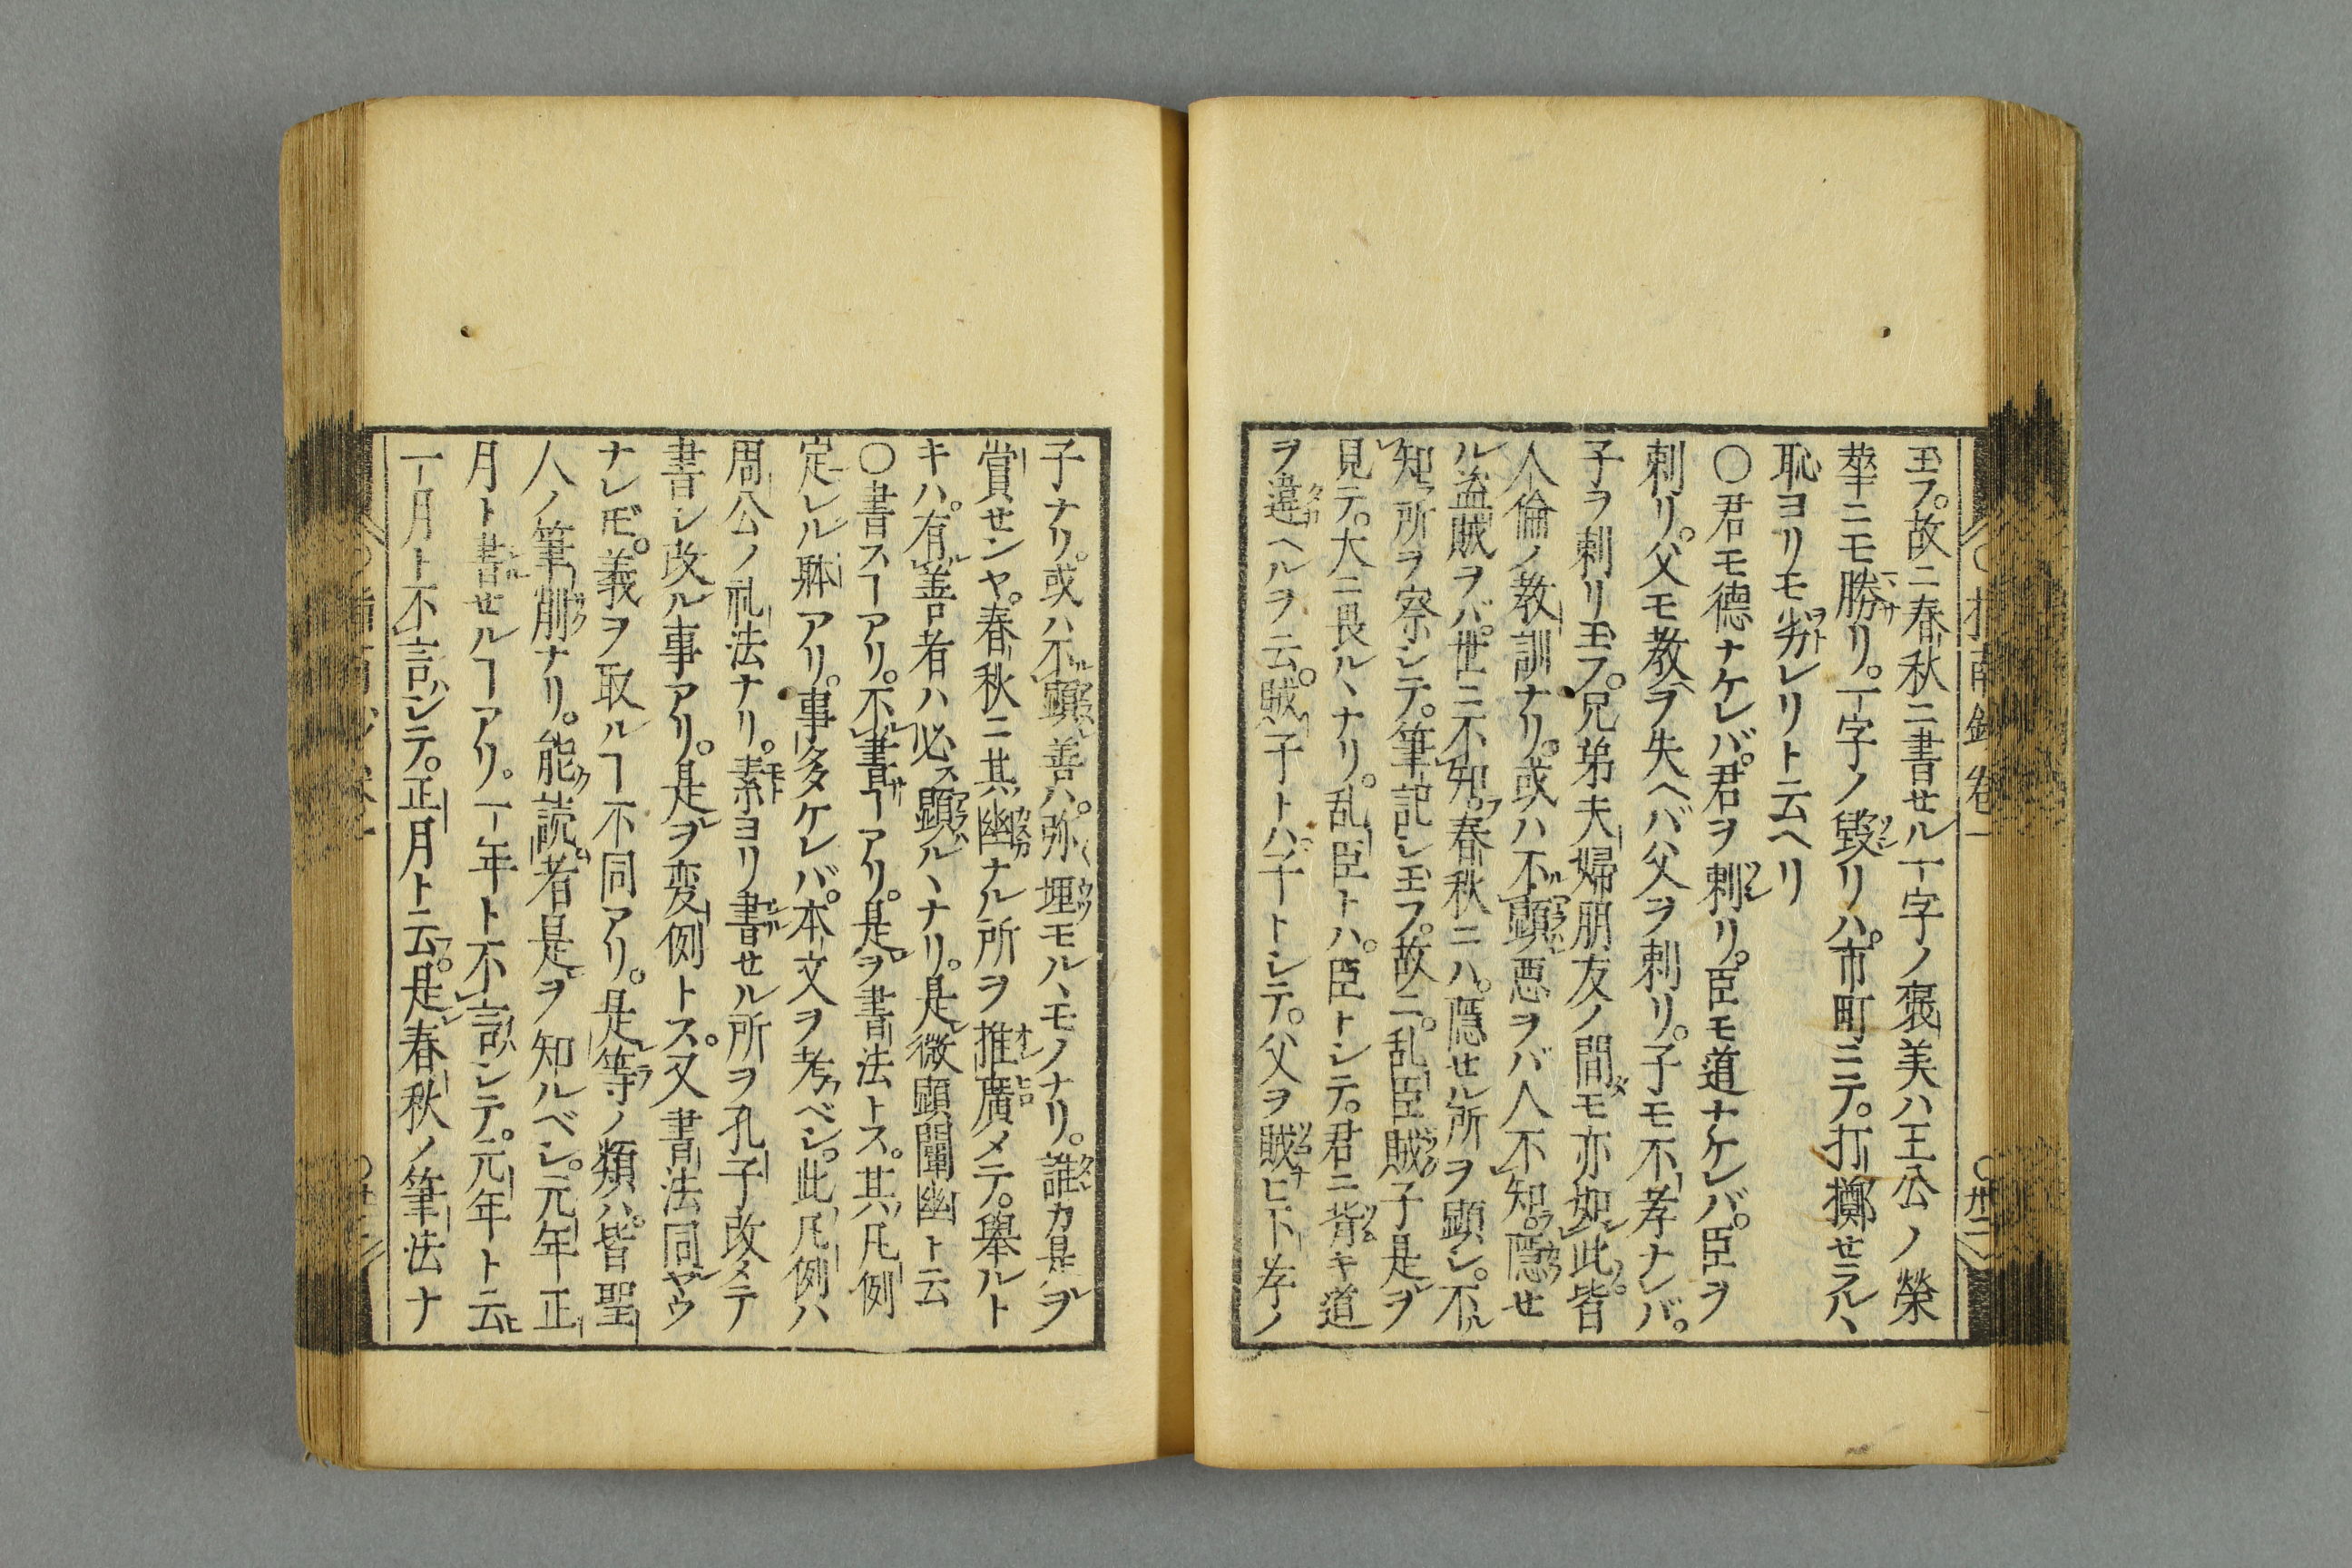 玉フ。故ニ春秋ニ書セル一字ノ褒美ハ王公ノ榮
華ニモ勝リ。一字ノ毀リハ。市町ニテ。打擲セラルヽ
恥ヨリモ劣レリト云ヘリ
〇君モ德ナケレバ。君ヲ刺リ。臣モ道ナケレバ。臣ヲ
刺リ。父モ教ヲ失ヘバ父ヲ刺リ。子モ不孝ナレバ。
子ヲ刺リ玉フ。兄弟夫婦朋友ノ間モ亦如此。皆
人倫ノ教訓ナリ。或ハ不顕悪ヲバ人不知。隠セ
ル盗賊ヲバ。世ニ不知。春秋ニハ。隠セル所ヲ顕シ。不
知所ヲ察シテ。筆記シ玉フ。故ニ。乱臣賊子是ヲ
見テ。大ニ畏ルヽナリ。乱臣トハ。臣トシテ。君ニ背キ道
ヲ違ヘルヲ云。賊子トハ子トシテ。父ヲ賊ヒ不孝ノ
子ナリ。或ハ不顕善ハ。弥埋モルヽモノナリ。誰カ是ヲ
賞センヤ。春秋ニ其幽ナル所ヲ推廣メテ。舉ルト
キハ。有善者ハ必ス顕ルヽナリ。是微顕闡幽ト云
〇書スヿアリ。不書ヿアリ。是ヲ書法トス。其凡例
定レル躰アリ。事多ケレバ。本文ヲ考ベシ。此凡例ハ
周公ノ礼法ナリ。素ヨリ書セル所ヲ孔子改メテ
書シ改ル事アリ。是ヲ変例トス。又書法同ヤウ
ナレ𪜈。義ヲ取ルヿ不同アリ。是等ノ類ハ。皆聖
人ノ筆削ナリ。能読者是ヲ知ルベシ。元年正
月ト書セルヿアリ。一年ト不言シテ。元年ト云
一月ト不言シテ。正月ト云。是春秋ノ筆法ナ